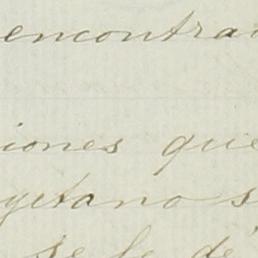 encontra
iones que
yetano s
se le dé